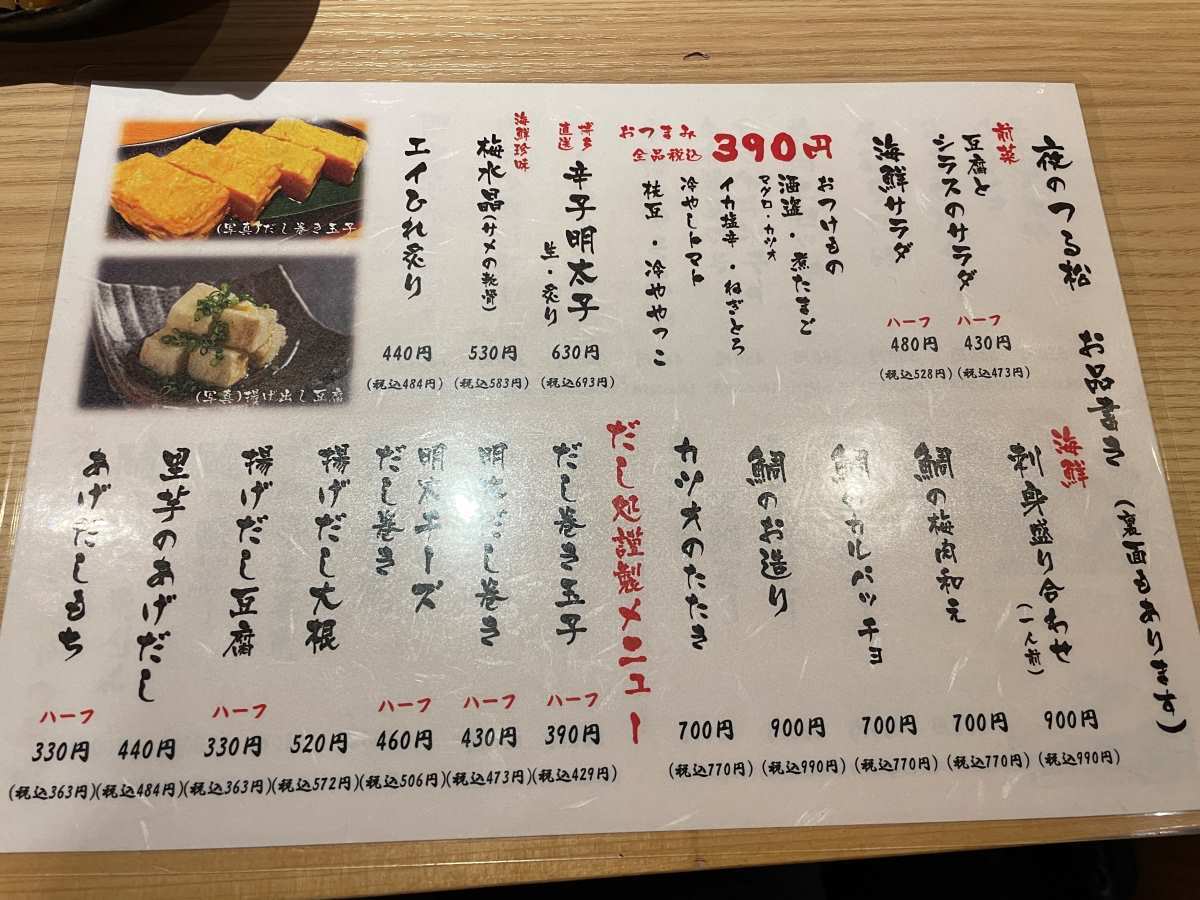 夜のつる松 お品書き (裏面もあります)
前菜
豆腐と
シラスのサラダ
ハーフ
430円
(税込473円)
海鮮サラダ
ハーフ
480円
(税込528円)
おつまみ
全品税込
390円
おつけもの
酒盗・煮たまご
マグロ・カツオ
イカ塩辛・ねぎとろ
冷やしトマト
枝豆・冷ややっこ
博多
直送
辛子明太子
生・炙り
630円
(税込693円)
海鮮珍味
梅水晶(サメの軟骨)
530円
(税込583円)
エイひれ炙り
440円
(税込484円)
(写真)だし巻き玉子
(写真)揚げ出し豆腐
海鮮
刺身盛り合わせ
(一人前)
900円
(税込990円)
鯛の梅肉和え
700円
(税込770円)
鯛のカルパッチョ
700円
(税込770円)
鯛のお造り
900円
(税込990円)
カツオのたたき
700円
(税込770円)
だし処謹製メニュー
だし巻き玉子
ハーフ
390円
(税込429円)
明太だし巻き
ハーフ
430円
(税込473円)
明太チーズ
だし巻き
ハーフ
460円
(税込506円)
揚げだし大根
520円
(税込572円)
揚げだし豆腐
ハーフ
330円
(税込363円)
里芋のあげだし
440円
(税込484円)
あげだしもち
ハーフ
330円
(税込363円)